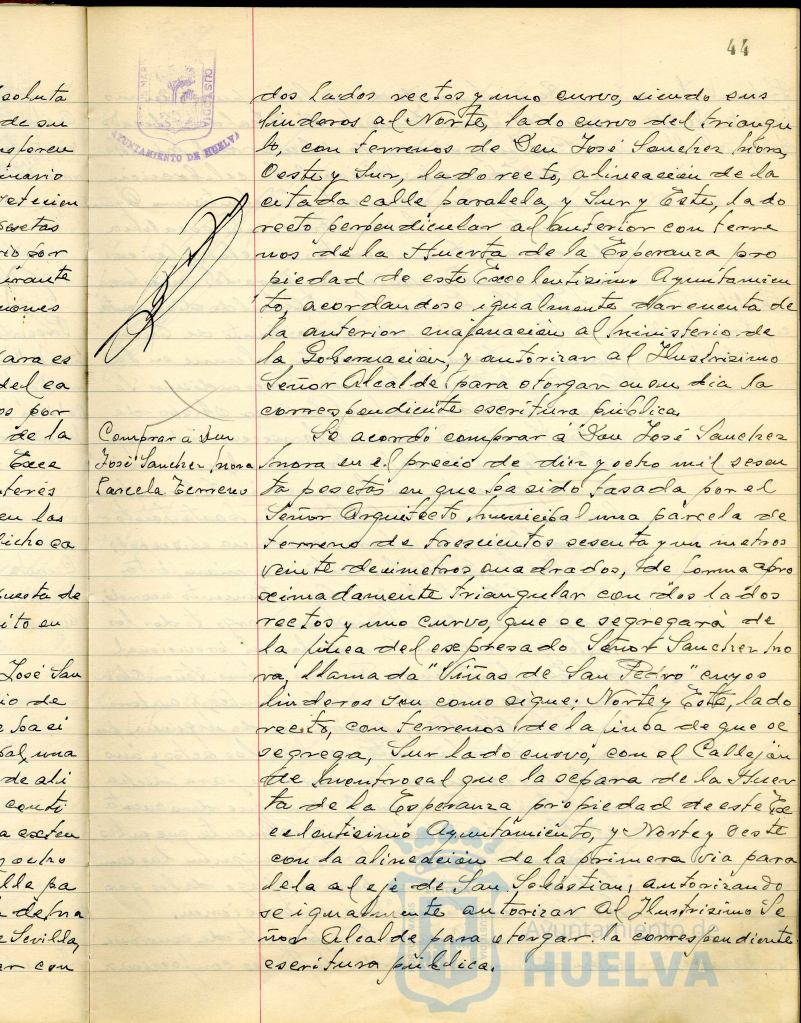 44
AYUNTAMIENTO DE HUELVA
CUSTODIA
dos lados rectos y uno curvo, siendo sus
linderos al Norte, lado curvo del triangu
lo, con terrenos de Don José Sanchez Mora,
Oeste y Sur, lado recto, alineacion de la
citada calle paralela, y Sur y Este, lado
recto perpendicular al anterior con terre
nos de la Huerta de la Esperanza pro
piedad de este Excelentisimo Ayuntamien
to, acordandose igualmente dar cuenta de
la anterior enajenación al Ministerio de
la Gobernación, y autorizar al Ilustrisimo
Señor Alcalde para otorgar en su dia la
correspondiente escritura pública.
Comprar á Don
José Sanchez Mora
Parcela Terreno
Se acordó comprar á Don José Sanchez
Mora en el precio de diez y ocho mil sesen
ta pesetas en que ha sido tasada por el
Señor Arquitecto Municipal una parcela de
terreno de trescientos sesenta y un metros
veinte decimetros cuadrados, de forma apro
ximadamente triangular con dos lados
rectos y uno curvo, que se segregará de
la finca del expresado Señor Sanchez Mo
ra, llamada "Viñas de San Pedro" cuyos
linderos son como sigue: Norte y Este, lado
recto, con terrenos de la finca de que se
segrega, Sur lado curvo, con el Callejón
de Montrocal que la separa de la Huer
ta de la Esperanza propiedad de este Ex
celentisimo Ayuntamiento, y Norte y Oeste
con la alineación de la primera via para
lela al eje de San Sebastian, autorizando
se igualmente autorizar al Ilustrisimo Se
ñor Alcalde para otorgar la correspondiente
escritura pública.
Ayuntamiento de
HUELVA